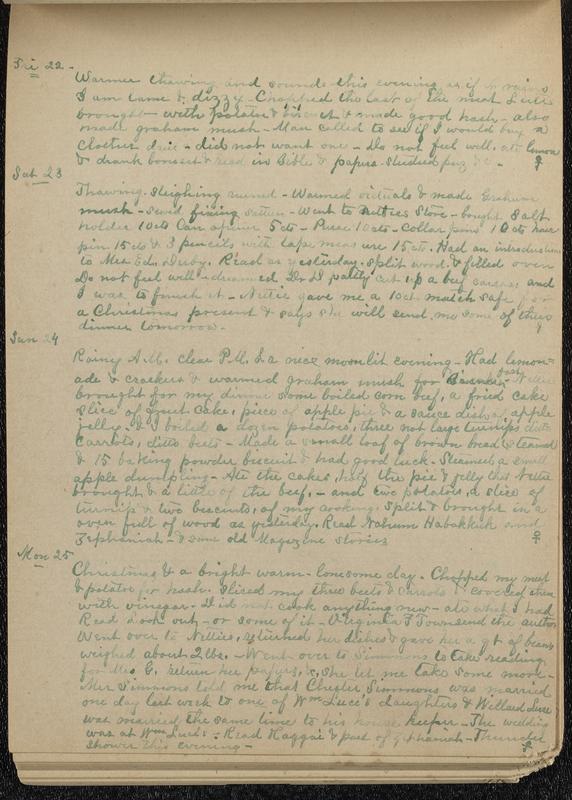 Fri 22 -
Warmer thawing and sounds this evening as if it rains
I am lame & dizzy - Chopped the last of the meat Lutie
brought - with potato & biscuit & made good hash - also
made graham mush - Man called to see if I would buy a
did not want one - Do not feel well, ate lemon
& drank & read in Bible & papers - studied &c -
Sat 23
Thawing. Sleighing ruined - Warmed victuals & made Graham
mush - sewed fixing - Went to Store - bought Salt
holder 10cts Can opener 5 cts - Purse 10cts - Collar pins 10 cts
pin 15 cts & 3 pencils with tape measure 15 cts. Had an introduction
to Mrs Ed. Derby. Read as yesterday. Split wood & filled oven
Do not feel well - dreamed Dr D cut up a beef carcass and
I was to finish it - Nettie gave me a 10 ct match safe for
a Christmas present & says she will send me some of their
dinner tomorrow -
Sun 24
Rainy A.M. clear P.M. & a nice moonlit evening - Had lemon=
ade & crackers & warmed graham mush for Nettie
brought for my dinner some boiled corn beef, a fried cake
slice of fruit cake, piece of apple pie & a sauce dish of apple
jelly. & I boiled a dozen potatoes, three not large turnips ditto
carrots, ditto beets - Made a small loaf of brown bread & steamed
& 15 baking powder biscuit & had good luck - Steamed a small
apple dumpling - Ate the cakes, half the pie & jelly that Nettie
brought & a little of the beef, - and two potatoes, a slice of
turnip & two biscuits, of my cooking. Split & brought in a
oven full of wood as yesterday. Read Nahum Habakkuk and
Zephaniah - & some old Magazine stories
Mon 25
Christmas & a bright warm - lonesome day - Chopped my meat
& potato for hash. Sliced my three beets & carrots & covered them
with vinegar. I did not cook anything new - ate what I had
Read book out - or some of it - Virginia F Townsend the author
Went over to Nettie's, returned her dishes & gave her a qt of beans
weighed about 2 lbs. - Went over to Simmons to take reading
for Mrs G. return her papers, &c, she let me take some more -
Mrs Simmons told me that Chester Simmons was married
one day last week to one of Wm Luce's daughters & Willard Luce
was married the same time to his house keeper - The wedding
was at Wm Luce's - Read Haggai & part of - Thunder
shower this evening -